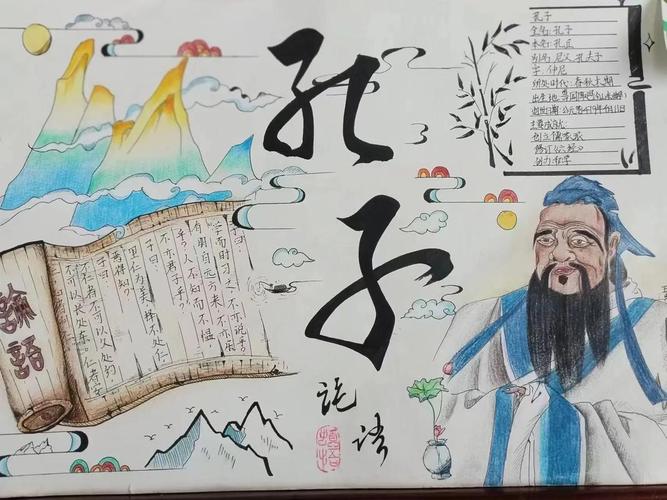 孔子
孔子
全名:孔子
本名:孔丘
别名:尼父、孔夫子
字:仲尼
所处时代:春秋末期
出生地:鲁国陬邑(山东曲阜)
逝世日期:公元前479年4月11日
主要成就:
创立儒家派
修订《六经》
创办私学
論語
子曰:
"学而时习之,不亦说乎?
有朋自远方来,不亦乐
乎?人不知而不愠,
不亦君子乎?"
子曰:
里仁为美,择不处仁,
焉得知?
子曰:
不仁者不可以久处约,
不可以长处乐。仁者安
论语